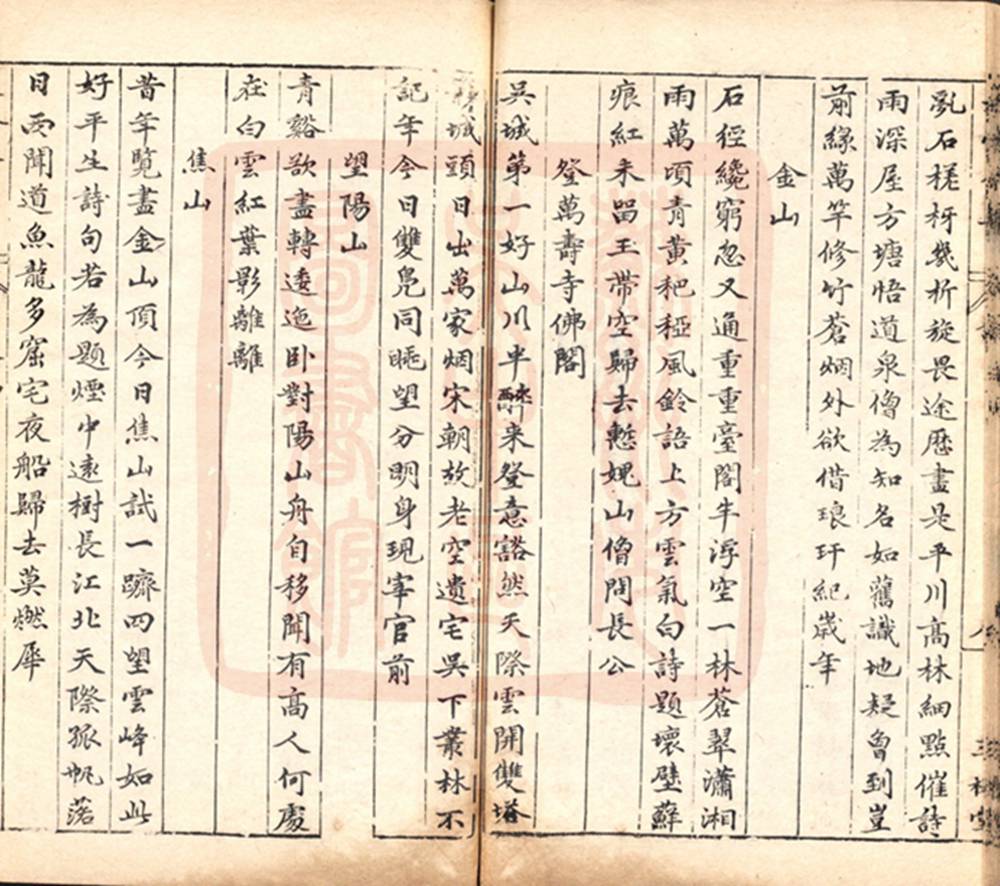 亂石槎枒幾折旋畏途歷盡是平川高林細點催詩
雨深屋方塘悟道泉僧為知名如舊識地疑曾到豈
前緣萬竿修竹蒼烟外欲借琅玕紀歲年
金山
石徑纔窮忽又通重重臺閣半浮空一林蒼翠瀟湘
雨萬頃青黃䆉稏風鈴語上方雲氣白詩題壞壁蘚
痕紅未留玉帶空歸去慙愧山僧問長公
登萬壽寺佛閣
吳城第一好山川半醉来登意豁然天際雲開雙塔
城頭日出萬家烟宋朝故老空遺宅吳下叢林不
記年今日雙鳧同眺望分明身現宰官前
望陽山
青谿欲盡轉逶迤卧對陽山舟自移聞有高人何處
在白雲紅葉影離離
焦山
昔年覽盡金山頂今日焦山試一躋四望雲峰如此
好平生詩句若為題煙中遠樹長江北天際孤帆落
日西聞道魚龍多窟宅夜船歸去莫燃犀